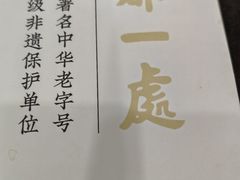 一處
著名中华老字号
级非遗保护单位